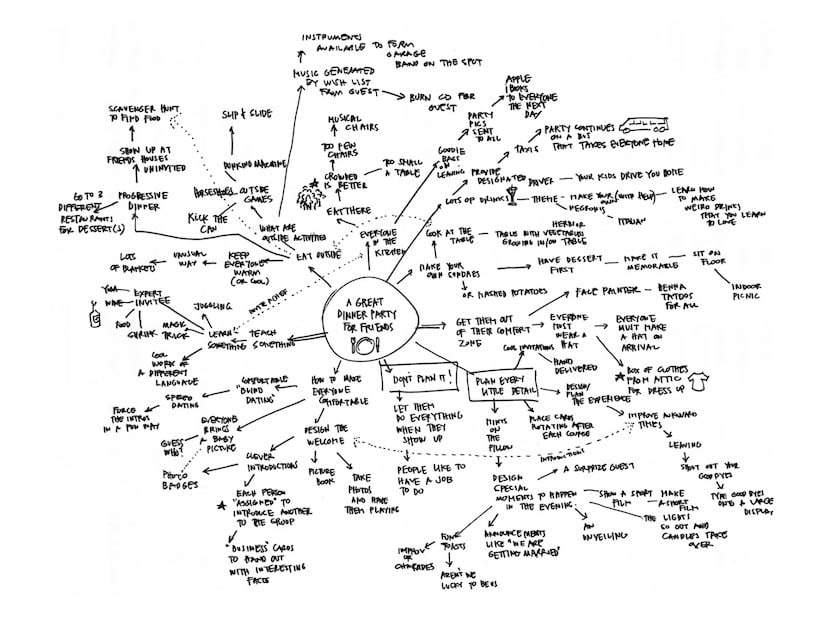 INSTRUMENTS
AVAILABLE TO FORM
GARAGE
BAND ON THE SPOT
MUSIC GENERATED
BY WISH LIST
FROM GUEST
BURN CD PER
GUEST
APPLE
IBOOKS
TO EVERYONE
THE NEXT
DAY
PARTY
PICS
SENT
TO ALL
GOODIE
BAGS
ON
LEAVING
SCAVENGER HUNT
TO FIND FOOD
SHOW UP AT
FRIENDS HOUSES
UNINVITED
PROGRESSIVE
DINNER
GO TO 3
DIFFERENT
RESTAURANTS
FOR DESSERT(S)
SLIP & SLIDE
DUNKING MACHINE
HORSESHOES
OUTSIDE
GAMES
KICK THE
CAN
WHAT ARE
OUTSIDE ACTIVITIES
EAT OUTSIDE
MUSICAL
CHAIRS
TOO FEW
CHAIRS
TO SMALL
A TABLE
CROWDED
IS BETTER
EAT THERE
EVERYONE
IN THE
KITCHEN
PARTY CONTINUES
ON A BUS
THAT TAKES EVERYONE HOME
TAXIS
PROVIDE
DESIGNATED DRIVER
YOUR KIDS DRIVE YOU HOME
LOTS OF DRINKS
THEME
MAKE YOUR (WITH HELP)
OWN
NEGRONIS
ITALIAN
LEARN HOW
TO MAKE
WEIRD DRINKS
THAT YOU LEARN
TO LOVE
LOOK AT THE
TABLE
TABLE WITH VEGETABLES
GROWING IN/ON TABLE
MAKE YOUR
OWN SUNDAES
OR MASHED POTATOES
HAVE DESSERT
FIRST
MAKE IT
MEMORABLE
SIT ON
FLOOR
INDOOR
PICNIC
LOTS
OF BLANKETS
UNUSUAL
WAY
KEEP
EVERYONE
WARM
(OR COOL)
YOGA
WINE
EXPERT
INVITEE
FOOD
SHRINK
MAGIC
TRICK
JUGGLING
LEARN
SOMETHING
TEACH
SOMETHING
COOL
WORK OF
A DIFFERENT
LANGUAGE
A GREAT
DINNER PARTY
FOR FRIENDS
GET THEM OUT
OF THEIR COMFORT
ZONE
FACE PAINTER
HENNA
TATTOOS
FOR ALL
EVERYONE
MUST
WEAR A
HAT
EVERYONE
MUST MAKE
A HAT ON
ARRIVAL
BOX OF CLOTHES
FROM ATTIC
FOR DRESS UP
DON'T PLAN IT!
PLAN EVERY
LITTLE DETAIL
COOL INVITATIONS
HAND
DELIVERED
DESIGN/
PLAN
THE EXPERIENCE
LET THEM
DO EVERYTHING
WHEN THEY
SHOW UP
PEOPLE LIKE TO
HAVE A JOB
TO DO
MINTS
ON
THE
PILLOW
PLACE CARDS
ROTATING AFTER
EACH COURSE
IMPROVE AWKWARD
TIMES
INTRODUCTIONS
LEAVING
SHOUT OUT YOUR
GOODBYES
TYPE GOODBYES
ONTO A LARGE
DISPLAY
HOW TO MAKE
EVERYONE
COMFORTABLE
COMFORTABLE
"BLIND
DATING"
SPEED
DATING
FORCE
THE INTROS
IN A FUN WAY
EVERYONE
BRINGS
A BABY
PICTURE
GUESS
WHO?
PHOTO
BADGES
DESIGN THE
WELCOME
PICTURE
BOOK
TAKE
PHOTOS
AND HAVE
THEM PLAYING
CLEVER
INTRODUCTIONS
EACH PERSON
"ASSIGNED" TO
INTRODUCE ANOTHER
TO THE GROUP
"BUSINESS" CARDS
TO HAND OUT
WITH INTERESTING
FACTS
DESIGN
SPECIAL
MOMENTS TO HAPPEN
IN THE EVENING
A SURPRIZE GUEST
SHOW A SHORT
FILM
MAKE
A SHORT
FILM
THE LIGHTS
GO OUT AND
CANDLES TAKE
OVER
AN
UNVEILING
ANNOUNCEMENTS
LIKE "WE ARE
GETTING MARRIED"
TOASTS
IMPROV
OR
CHARADES
AREN'T WE
LUCKY TO BE US